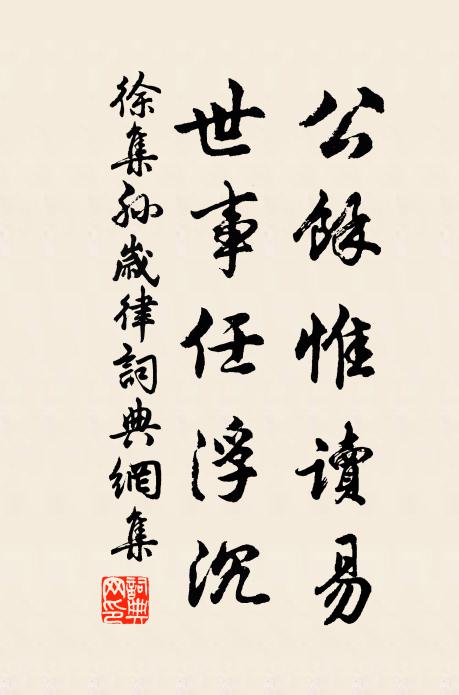 公餘惟讀易
世事任浮沉
徐集孙歲律詞典網集
詞典网印